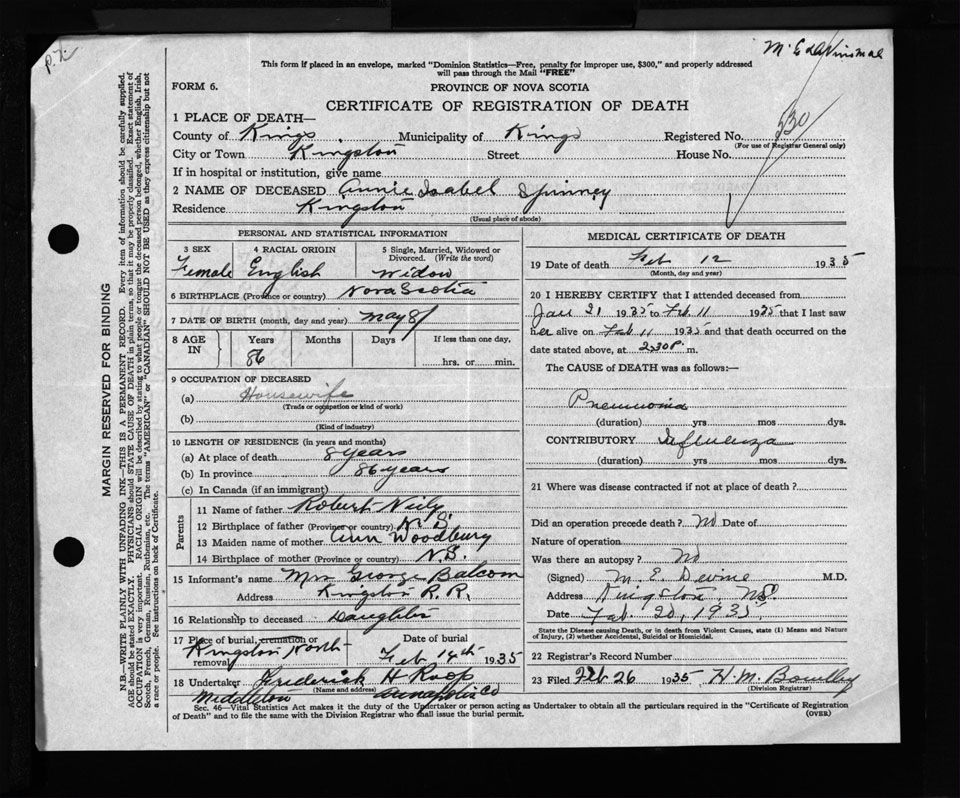 P.Z.
This form if placed in an envelope, marked "Dominion Statistics—Free, penalty for improper use, $300," and properly addressed
will pass through the Mail "FREE"
FORM 6.
PROVINCE OF NOVA SCOTIA
CERTIFICATE OF REGISTRATION OF DEATH
1 PLACE OF DEATH—
County of Kings Municipality of Kings Registered No. 530
(For use of Registrar General only)
City or Town Kingston Street House No.
If in hospital or institution, give name
2 NAME OF DECEASED Annie Isabel Spinney
Residence Kingston
(Usual place of abode)
MARGIN RESERVED FOR BINDING
N.B.—WRITE PLAINLY WITH UNFADING INK—THIS IS A PERMANENT RECORD. Every item of information should be carefully supplied.
AGE should be stated EXACTLY. PHYSICIANS should STATE CAUSE OF DEATH in plain terms, so that it may be properly classified. Exact statement of
OCCUPATION is very important. RACIAL ORIGIN will be described by stating to what people or tongue the deceased person belonged, whether English, Irish,
Scotch, French, German, Russian, Ruthenian, etc. The terms "AMERICAN" or "CANADIAN" SHOULD NOT BE USED as they express citizenship but not
a race or people. See instructions on back of Certificate.
PERSONAL AND STATISTICAL INFORMATION
3 SEX
Female
4 RACIAL ORIGIN
English
5 Single, Married, Widowed or
Divorced. (Write the word)
Widow
6 BIRTHPLACE (Province or country) Nova Scotia
7 DATE OF BIRTH (month, day and year) May 8
8 AGE
IN
Years
86
Months
Days
If less than one day,
hrs. or min.
9 OCCUPATION OF DECEASED
(a) Housewife
(Trade or occupation or kind of work)
(b)
(Kind of industry)
10 LENGTH OF RESIDENCE (in years and months)
(a) At place of death 8 years
(b) In province 86 years
(c) In Canada (if an immigrant)
Parents
11 Name of father Robert Neily
12 Birthplace of father (Province or country) N.S.
13 Maiden name of mother Ann Woodbury
14 Birthplace of mother (Province or country) N.S.
15 Informant's name Mrs George Balcom
Address Kingston R.R.
16 Relationship to deceased Daughter
17 Place of burial, cremation or
removal Kingston North
Date of burial
Feb 14th 1935
18 Undertaker Frederick H Roop
(Name and address)
Middleton Annapolis Co
MEDICAL CERTIFICATE OF DEATH
19 Date of death Feb 12 1935
(Month, day and year)
20 I HEREBY CERTIFY that I attended deceased from
Jan 31 1935 to Feb 11 1935 that I last saw
her alive on Feb 11 1935 and that death occurred on
date stated above, at 2.30 P. m.
The CAUSE of DEATH was as follows:—
Pneumonia
(duration) yrs mos dys.
CONTRIBUTORY Influenza
(duration) yrs mos dys.
21 Where was disease contracted if not at place of death?
Did an operation precede death? No Date of
Nature of operation
Was there an autopsy? No
(Signed) M. E. Devine M.D.
Address Kingston, N.S.
Date Feb. 20, 1935
State the Disease causing Death, or in death from Violent Causes, state (1) Means and Nature
of Injury, (2) whether Accidental, Suicidal or Homicidal.
22 Registrar's Record Number
23 Filed Feb 26 1935 H. M.
(Division Registrar)
Sec. 46—Vital Statistics Act makes it the duty of the Undertaker or person acting as Undertaker to obtain all the particulars required in the "Certificate of Registration
of Death" and to file the same with the Division Registrar who shall issue the burial permit.
(OVER)